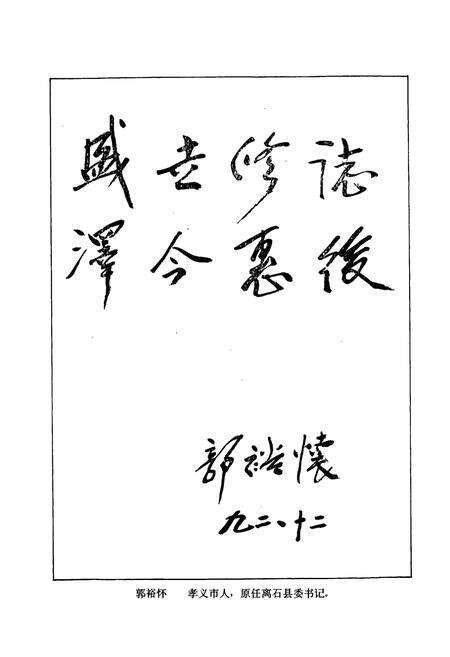 盛世修誌
澤今惠後
郭裕懷
九二、十二
郭裕怀 孝义市人，原任离石县委书记。